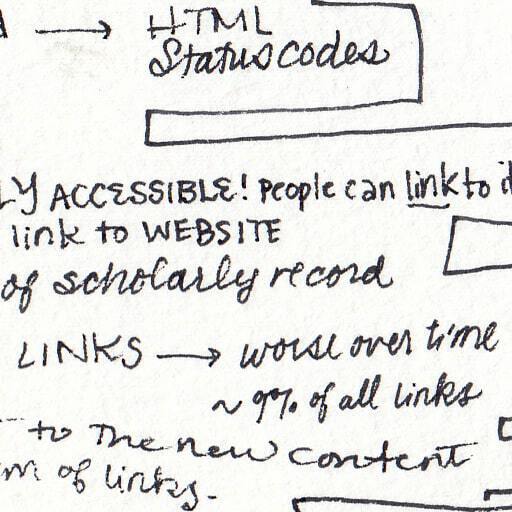 → HTML
Status codes
LY ACCESSIBLE! People can link to it
link to WEBSITE
of scholarly record
LINKS → worse over time
~ 9% of all links
to the new content
of links.